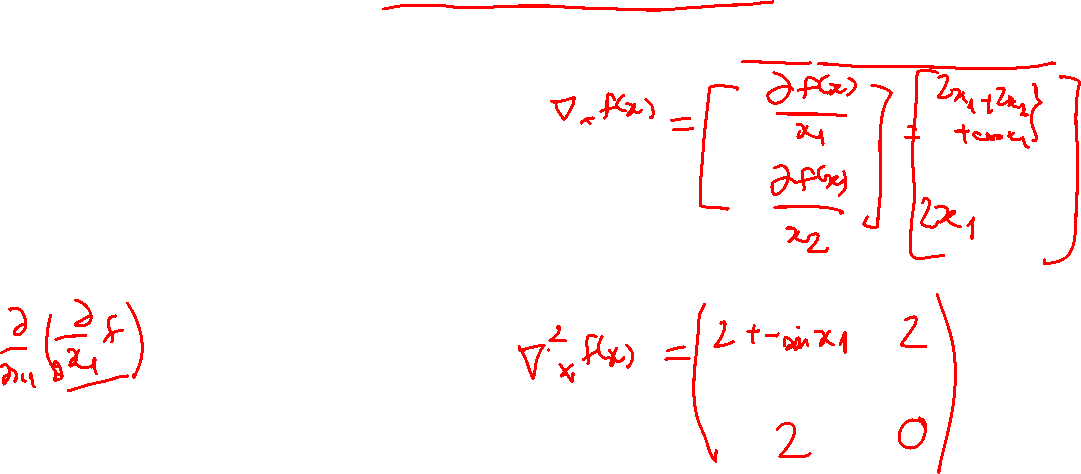 ∇ₓ f(x) = [ ∂f(x)/x₁ ; ∂f(x)/x₂ ] = [ 2x₁ + 2x₂ + cos x₁ ; 2x₁ ]
∂/∂x₁ ( ∂/∂x₁ f )
∇²ₓ f(x) = ( 2 + -sin x₁  2 ; 2  0 )